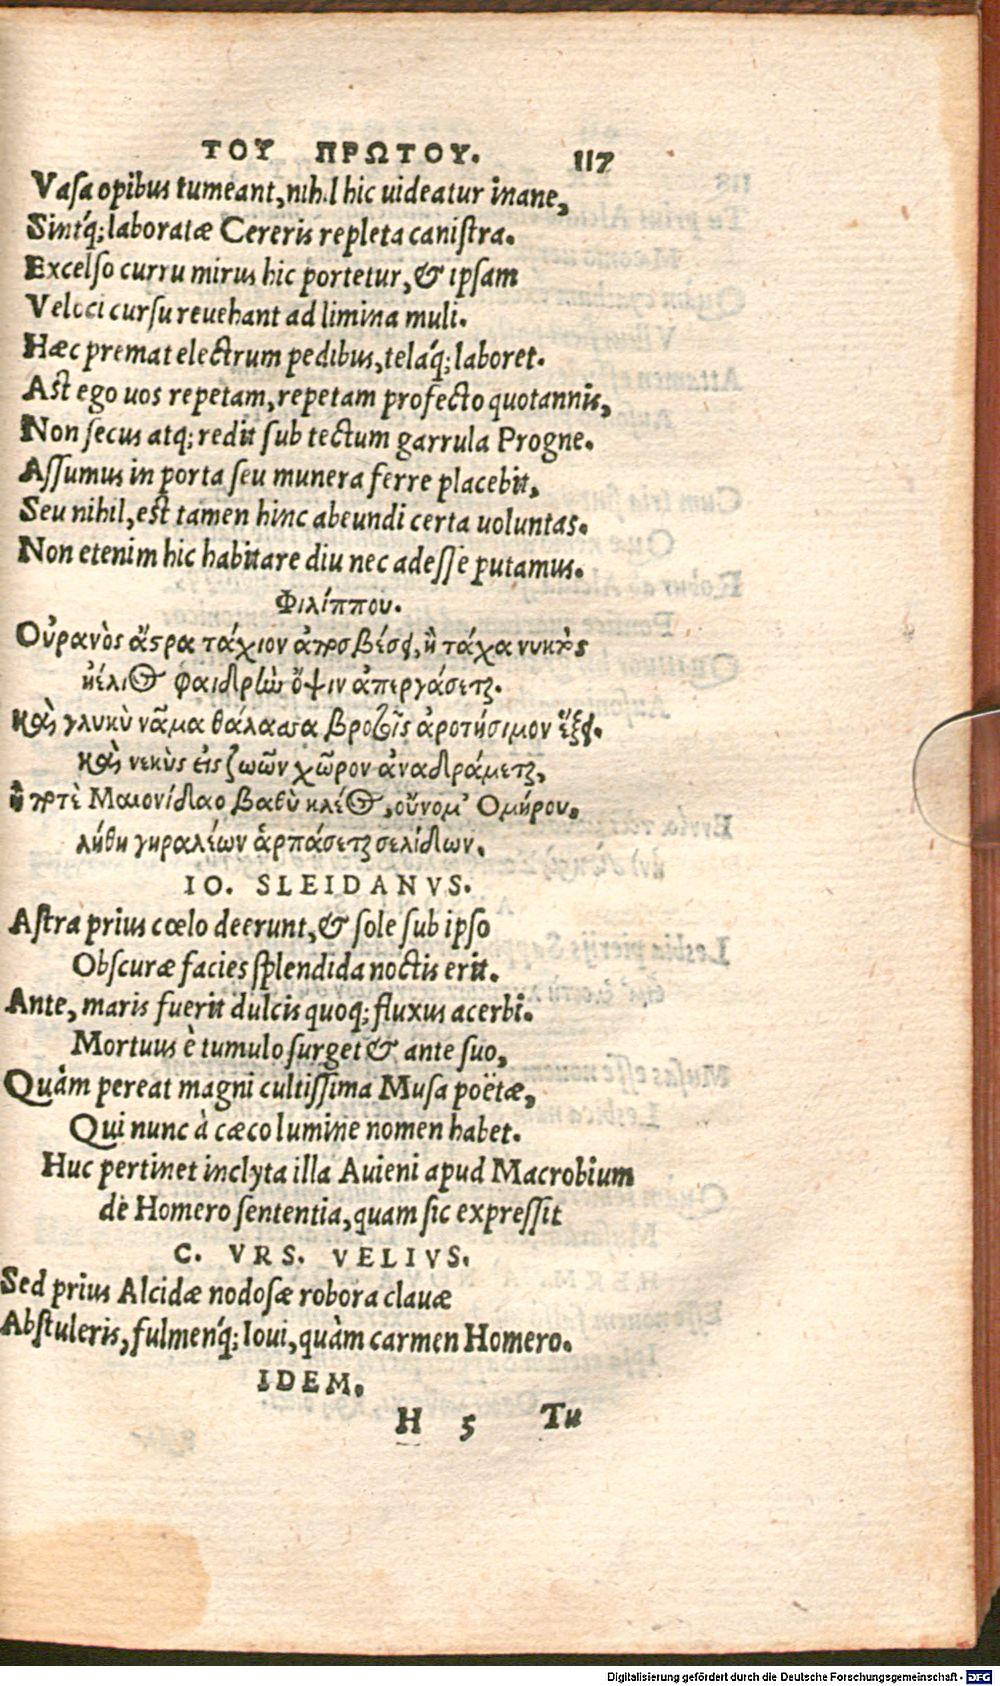 ΤΟΥ ΠΡΩΤΟΥ. 117
Vasa opibus tumeant, nihil hic uideatur inane,
Sintq́; laboratæ Cereris repleta canistra.
Excelso curru mirus hic portetur, & ipsam
Veloci cursu reuehant ad limina muli.
Hæc premat electrum pedibus, telaq́; laboret.
Ast ego uos repetam, repetam profecto quotannis,
Non secus atq; redit sub tectum garrula Progne.
Assumus in porta seu munera ferre placebit,
Seu nihil, est tamen hinc abeundi certa uoluntas.
Non etenim hic habitare diu nec adesse putamus.
Φιλίππου.
Οὐρανὸς ἄστρα τάχιον ἀποσβέσει, ἢ τάχα νυκτὸς
ἠέλιος φαιδρὴν ὄψιν ἀπεργάσεται.
καὶ γλυκὺ νᾶμα θάλασσα βροτοῖς ἀροτήσιμον ἕξει.
καὶ νεκὺς εἰς ζωῶν χῶρον ἀναδράμεται,
ἢ ποτὲ Μαιονίδαο βαθὺ κλέος, οὔνομ' Ομήρου,
λήθη γηραλέων ἁρπάσεται σελίδων.
IO. SLEIDANVS.
Astra prius cœlo deerunt, & sole sub ipso
Obscuræ facies splendida noctis erit.
Ante, maris fuerit dulcis quoq; fluxus acerbi.
Mortuus è tumulo surget & ante suo,
Quàm pereat magni cultissima Musa poëtæ,
Qui nunc à cæco lumine nomen habet.
Huc pertinet inclyta illa Auieni apud Macrobium
de Homero sententia, quam sic expressit
C. VRS. VELIVS.
Sed prius Alcidæ nodosæ robora clauæ
Abstuleris, fulmenq́; Ioui, quàm carmen Homero.
IDEM.
H 5 Tu
Digitalisierung gefördert durch die Deutsche Forschungsgemeinschaft - DFG